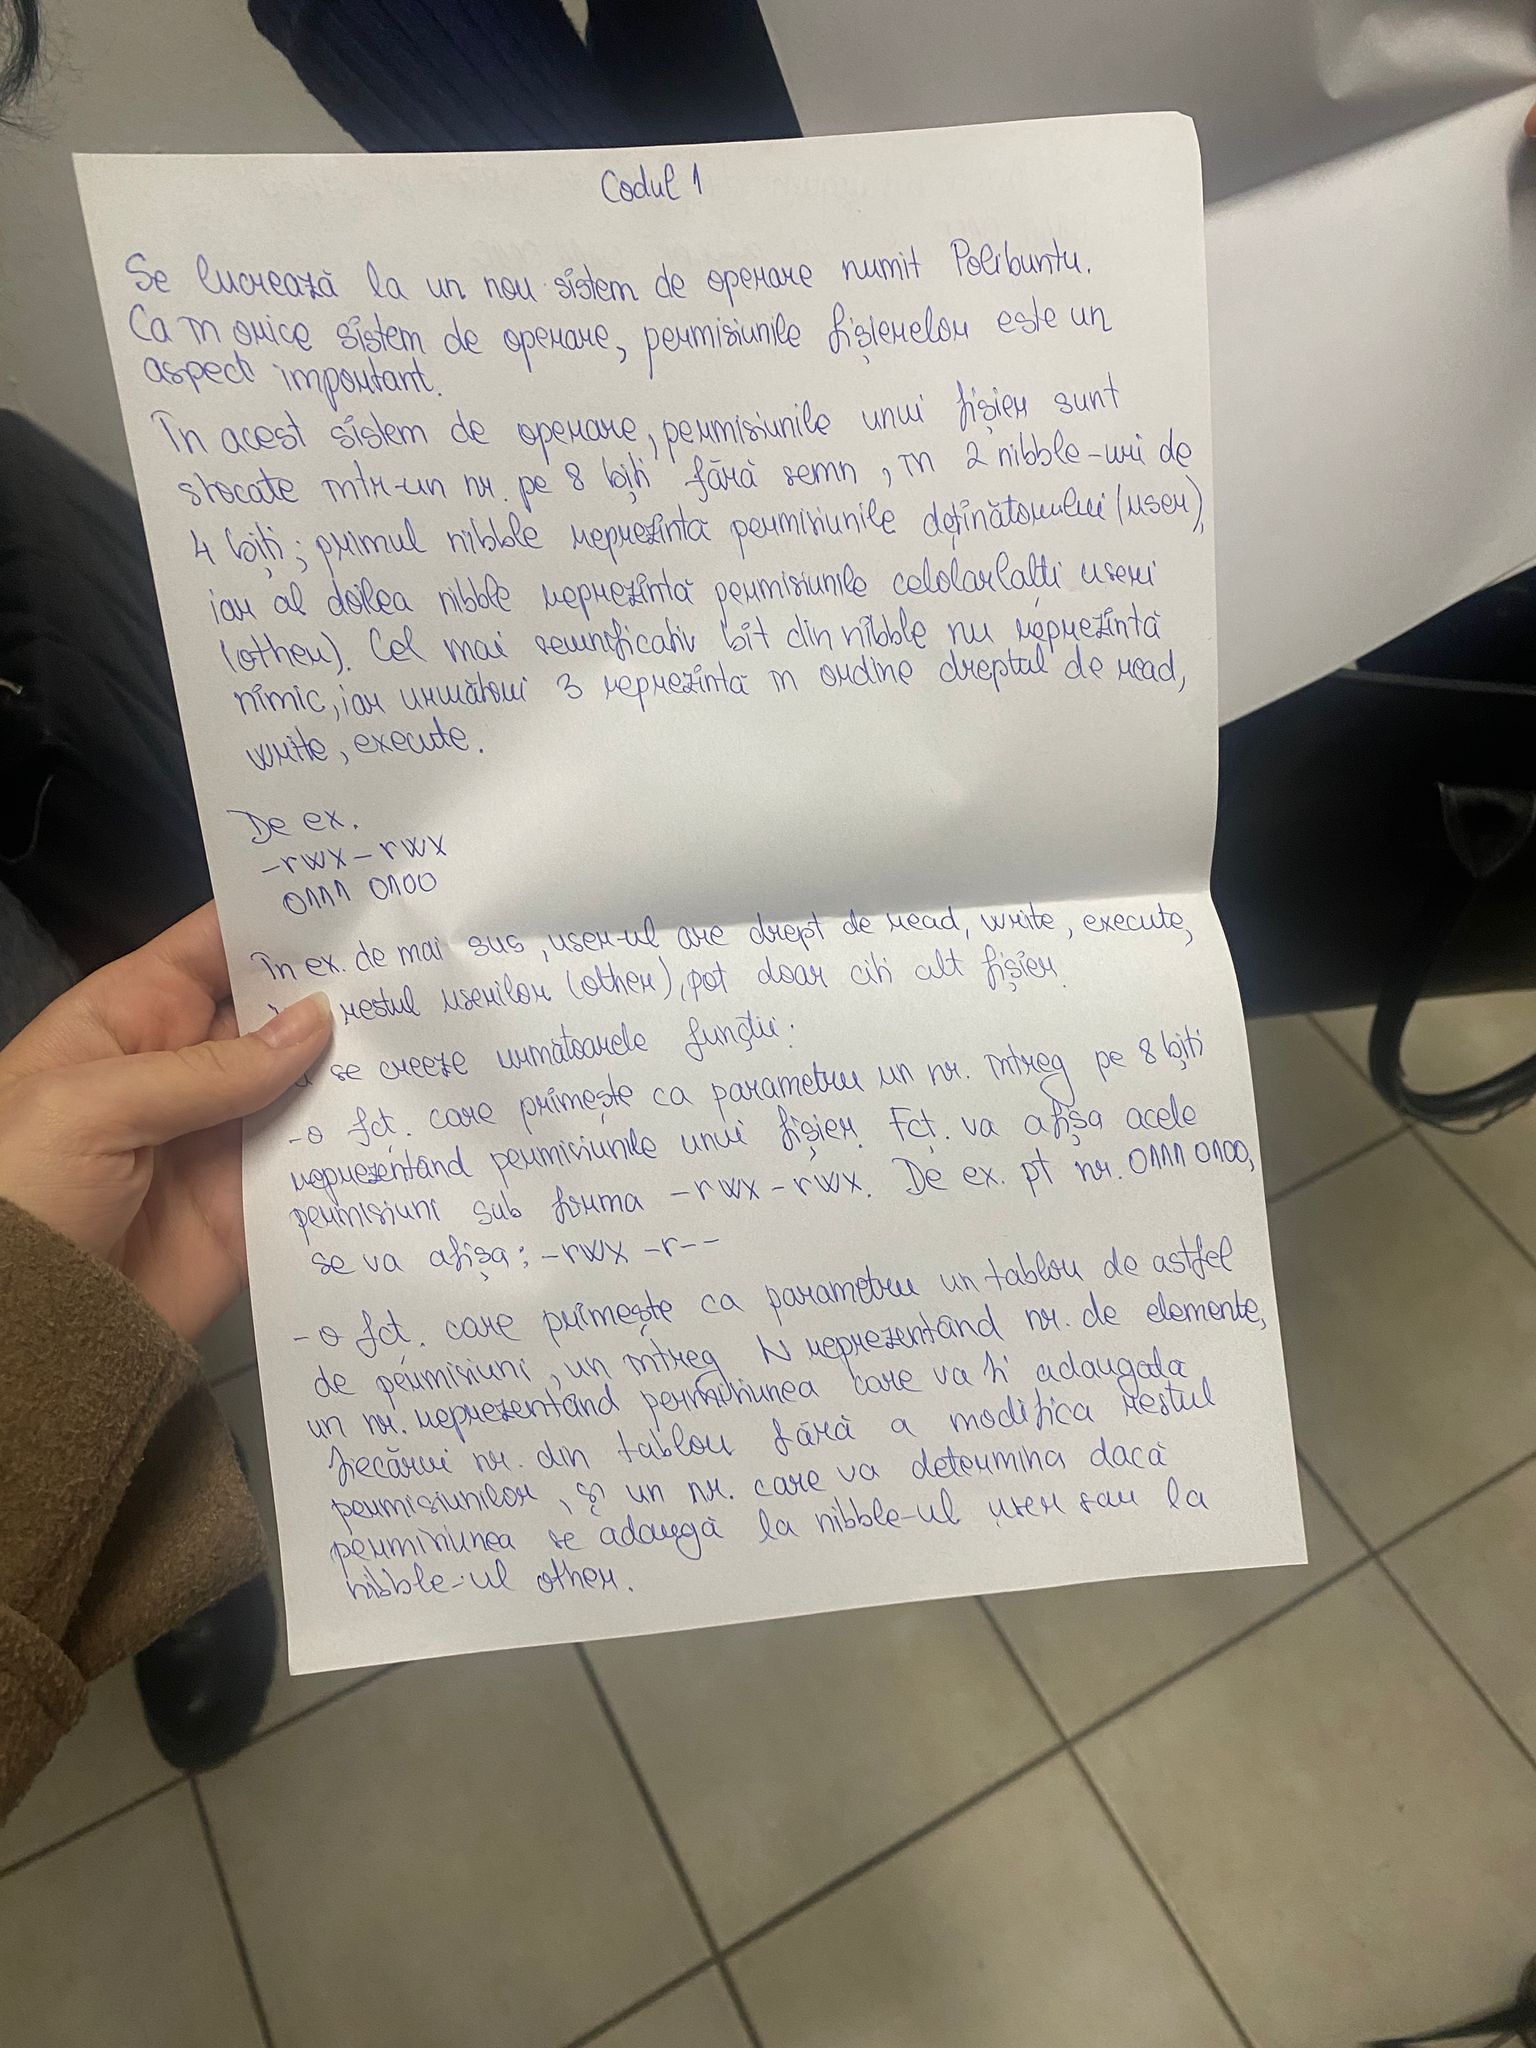 Codul 1
Se lucrează la un nou sistem de operare numit Polibuntu.
Ca în orice sistem de operare, permisiunile fișierelor este un
aspect important.
În acest sistem de operare, permisiunile unui fișier sunt
stocate într-un nr. pe 8 biți fără semn, în 2 nibble-uri de
4 biți; primul nibble reprezintă permisiunile deținătorului (user),
iar al doilea nibble reprezintă permisiunile celolarlalți useri
(other). Cel mai semnificativ bit din nibble nu reprezintă
nimic, iar următorii 3 reprezintă în ordine dreptul de read,
write, execute.
De ex.
-rwx-rwx
0111 0100
În ex. de mai sus, user-ul are drept de read, write, execute,
restul userilor (other), pot doar citi alt fișier.
se creeze următoarele funcții:
-o fct. care primește ca parametru un nr. întreg pe 8 biți
reprezentând permisiunile unui fișier. Fct. va afișa acele
permisiuni sub forma -rwx-rwx. De ex. pt nr. 0111 0100,
se va afișa: -rwx -r--
-o fct. care primește ca parametru un tablou de astfel
de permisiuni, un întreg N reprezentând nr. de elemente,
un nr. reprezentând permisiunea care va fi adaugata
fiecărui nr. din tablou fără a modifica restul
permisiunilor, și un nr. care va determina dacă
permisiunea se adaugă la nibble-ul user sau la
nibble-ul other.